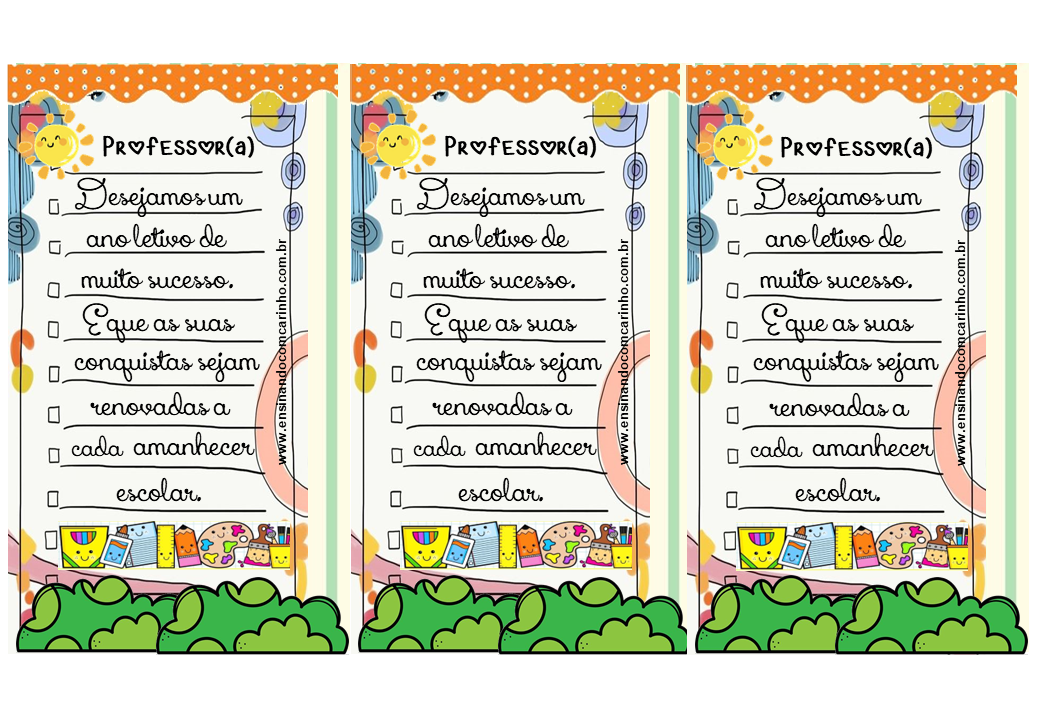 Professor(a)
Desejamos um
ano letivo de
muito sucesso.
E que as suas
conquistas sejam
renovadas a
cada amanhecer
escolar.
www.ensinandocomcarinho.com.br
Professor(a)
Desejamos um
ano letivo de
muito sucesso.
E que as suas
conquistas sejam
renovadas a
cada amanhecer
escolar.
www.ensinandocomcarinho.com.br
Professor(a)
Desejamos um
ano letivo de
muito sucesso.
E que as suas
conquistas sejam
renovadas a
cada amanhecer
escolar.
www.ensinandocomcarinho.com.br